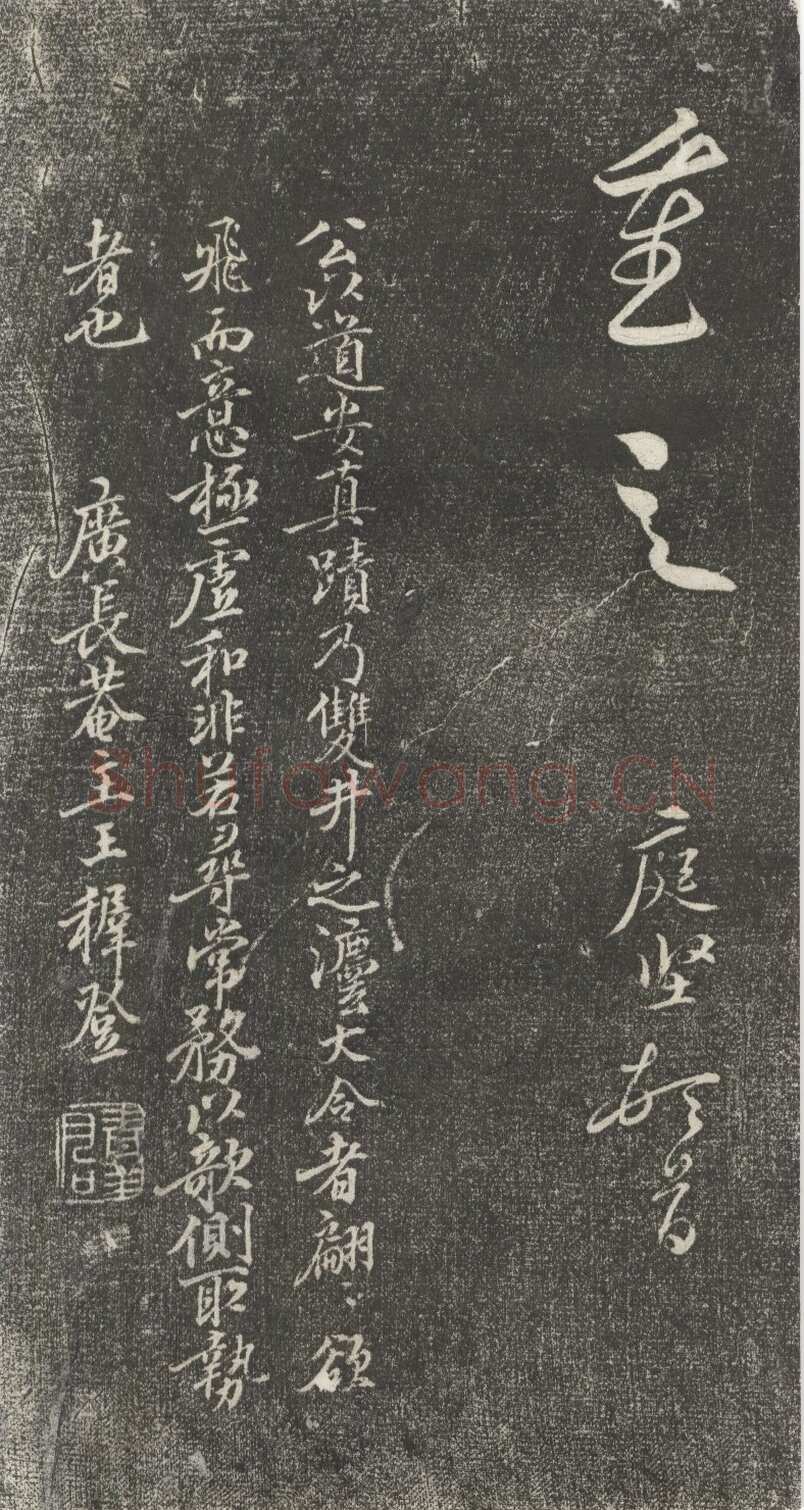 重之 庭坚頓首
公以道安真蹟乃雙井之灋大令者翩〻欲
飛而意極虛和非若尋常務以欹側取勢
者也 廣長菴主王穉登
Shufawang.CN